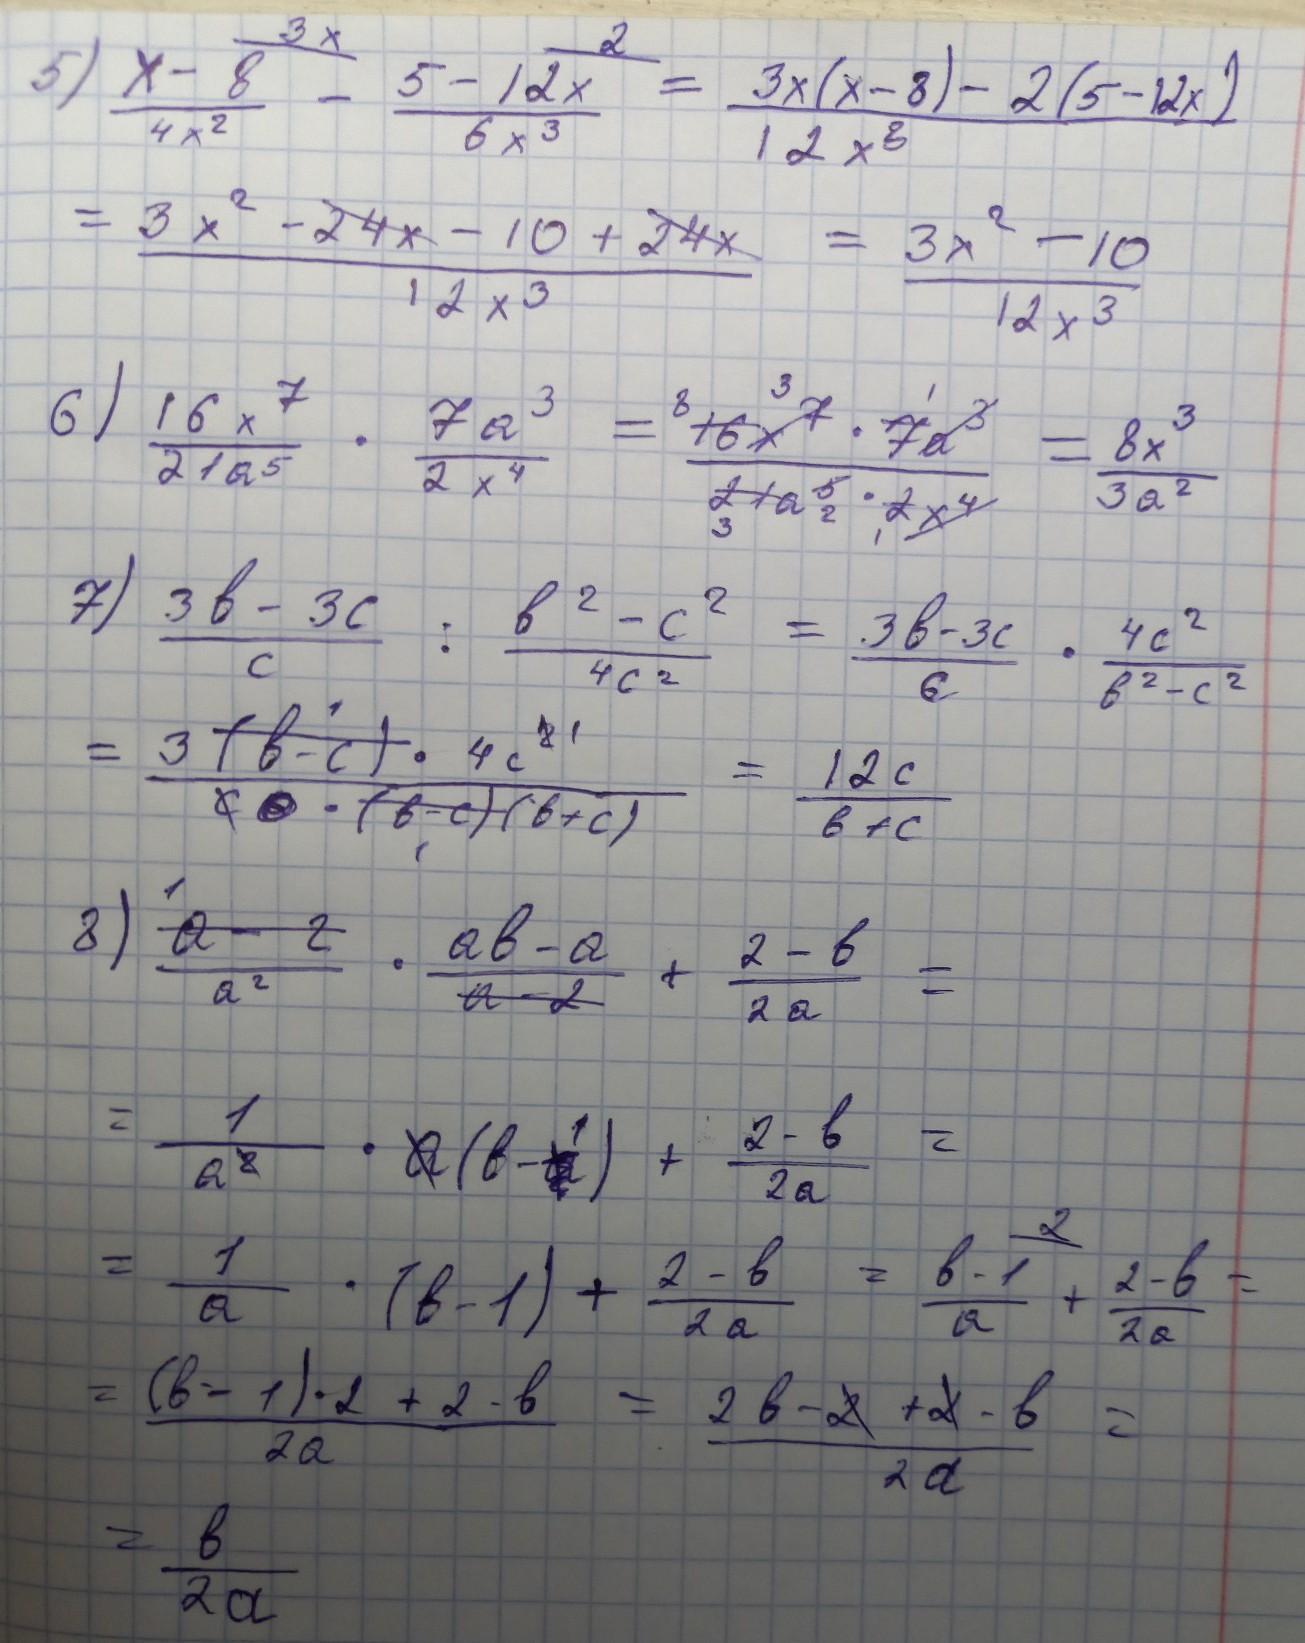 5) (x - 8)/(4x²) ^(3x) - (5 - 12x)/(6x³) ^(2) = (3x(x - 8) - 2(5 - 12x))/(12x³)
= (3x² - 24x - 10 + 24x)/(12x³) = (3x² - 10)/(12x³)
6) (16x⁷)/(21a⁵) · (7a³)/(2x⁴) = (16x⁷ · 7a³)/(21a⁵ · 2x⁴) = (8x³)/(3a²)
7) (3в - 3c)/c : (в² - c²)/(4c²) = (3в - 3c)/c · (4c²)/(в² - c²)
= (3(в - c) · 4c²)/(c · (в - c)(в + c)) = (12c)/(в + c)
8) (a - 2)/(a²) · (aв - a)/(a - 2) + (2 - в)/(2a) =
= 1/(a²) · a(в - 1) + (2 - в)/(2a) =
= 1/a · (в - 1) + (2 - в)/(2a) = (в - 1)/a ^(2) + (2 - в)/(2a) =
= ((в - 1) · 2 + 2 - в)/(2a) = (2в - 2 + 2 - в)/(2a) =
= в/(2a)